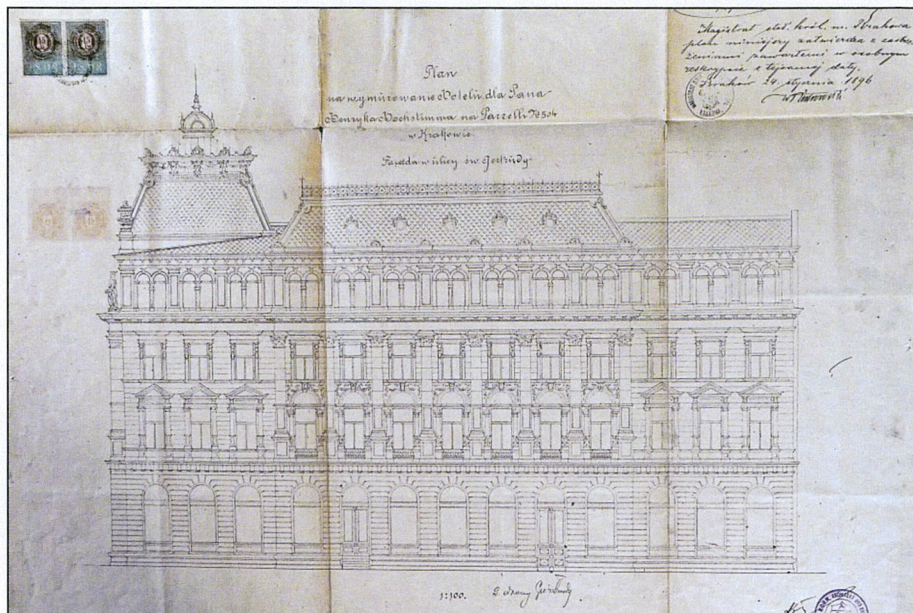 Plan
na wymurowanie Hotelu dla Pana
Henryka Hochstimma na Parzelli № 504
w Krakowie
Fasada w ulicy św. Gertrudy
Magistrat stoł. król. m. Krakowa
plan niniejszy zatwierdza z zastrze-
żeniami zawartemi w osobnym
reskrypcie z tejsamej daty.
Kraków 29 stycznia 1896
1:100.